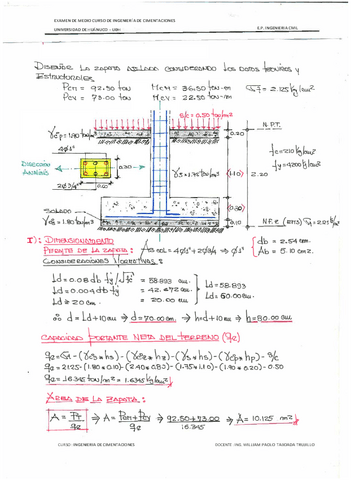 EXAMEN DE MEDIO CURSO DE INGENIERÍA DE CIMENTACIONES
UNIVERSIDAD DE HUÁNUCO - UDH
E.P. INGENIERIA CIVIL
DISEÑAR LA ZAPATA AISLADA CONSIDERANDO LOS DATOS TECNICOS Y
ESTRUCTURALES
PCM = 92.50 TON MCM = 36.50 TON-M
PCV = 73.00 TON MCV = 22.50 TON-M
S/C = 0.50 TON/m²
N.P.T.
0.20
4Ø1"
2Ø3/4"
DIRECCIÓN
ANÁLISIS
(1.10)
2.20
f'c=210 kg/cm²
fy=4200 kg/cm²
SOLADO
0.10
I): DIMENSIONAMIENTO
PERALTE DE LA ZAPATA:
db = 2.54 cm.
Ab = 5.10 cm2.
CONSIDERACIONES NORMATIVAS:
Ld = 0.08 db fy/√f'c = 58.893 cm
Ld = 0.004 db fy = 42.672 cm
Ld ≥ 20 cm = 20.00 cm
Ld = 58.893
Ld = 60.00 cm
∴ d = Ld+10 cm ⇒ d = 70.00 cm. → h = d+10 cm ⇒ h = 80.00 cm
CAPACIDAD PORTANTE NETA DEL TERRENO (qe)
qe = 21.25 - (1.80*0.10) - (2.40*0.80) - (1.75*1.10) - (1.90*0.20) - 0.50
qe = 16.345 ton/m² = 1.6345 kg/cm²
ÁREA DE LA ZAPATA:
A = PT/qe ⇒ A = PCM+PCV/qe ⇒ 92.50+73.00/16.345 ⇒ A = 10.125 m²
CURSO: INGENIERIA DE CIMENTACIONES
DOCENTE: ING. WILLIAM PAOLO TABOADA TRUJILLO